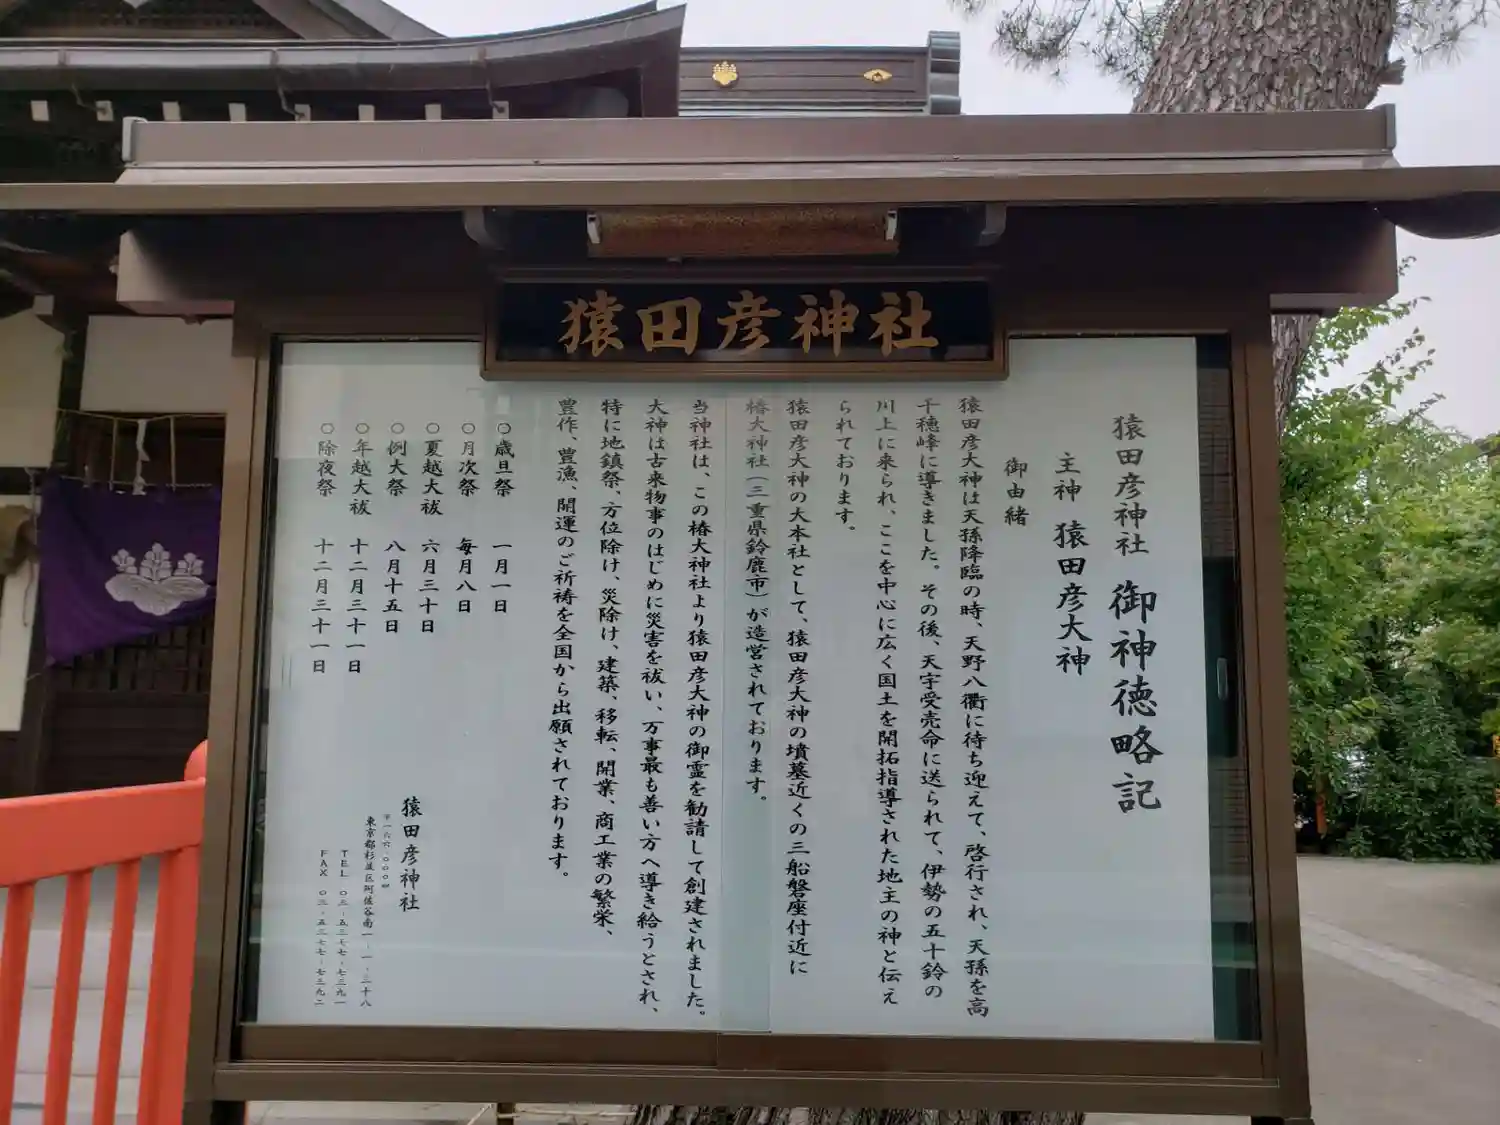 猿田彦神社
猿田彦神社 御神徳略記
主神 猿田彦大神
御由緒
猿田彦大神は天孫降臨の時、天野八衢に待ち迎えて、啓行され、天孫を高
千穂峰に導きました。その後、天宇受売命に送られて、伊勢の五十鈴の
川上に来られ、ここを中心に広く国土を開拓指導された地主の神と伝え
られております。
猿田彦大神の大本社として、猿田彦大神の墳墓近くの三船磐座付近に
椿大神社（三重県鈴鹿市）が造営されております。
当神社は、この椿大神社より猿田彦大神の御霊を勧請して創建されました。
大神は古来物事のはじめに災害を祓い、万事最も善い方へ導き給うとされ、
特に地鎮祭、方位除け、災除け、建築、移転、開業、商工業の繁栄、
豊作、豊漁、開運のご祈祷を全国から出願されております。
〇歳旦祭 一月一日
〇月次祭 毎月八日
〇夏越大祓 六月三十日
〇例大祭 八月十五日
〇年越大祓 十二月三十一日
〇除夜祭 十二月三十一日
猿田彦神社
〒一六六-〇〇〇四
東京都杉並区阿佐谷南一-一-三十八
TEL 〇三-五三七七-七三九一
FAX 〇三-五三七七-七三九二